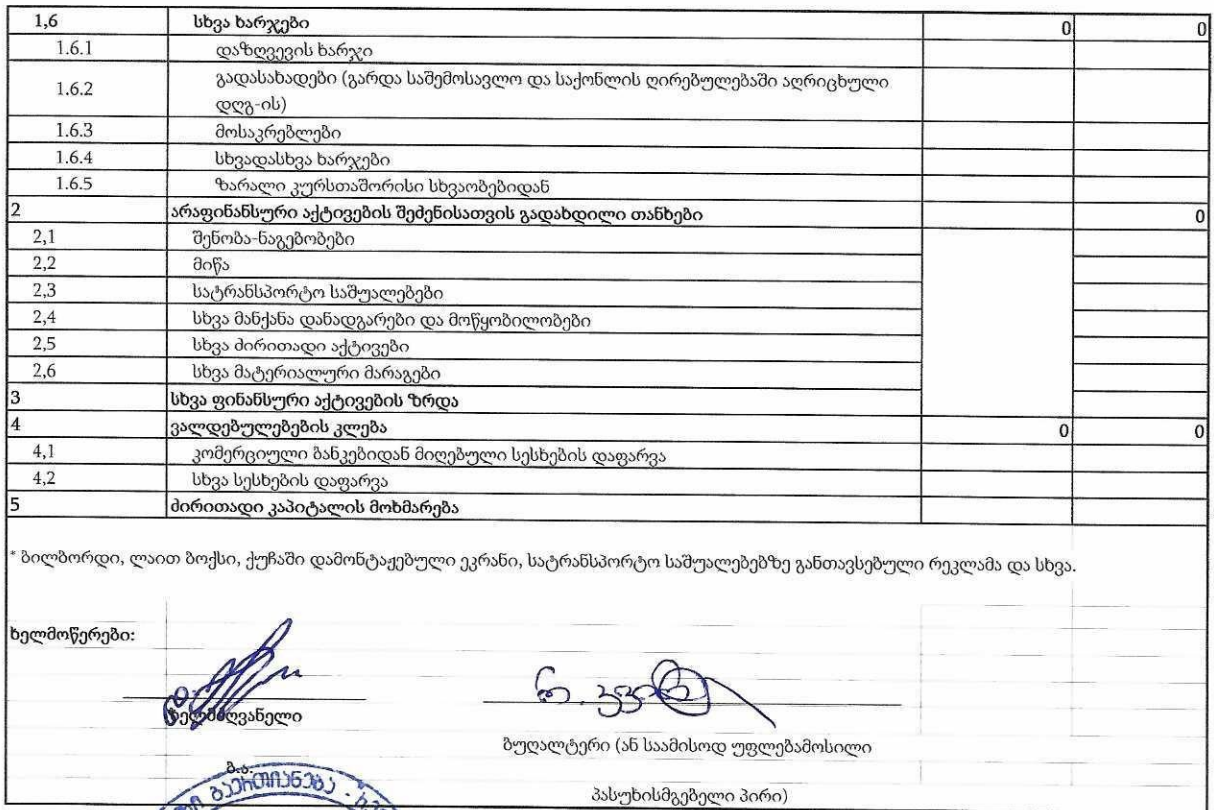 1,6 სხვა ხარჯები 0 0
1.6.1 დაზღვევის ხარჯი
1.6.2 გადასახადები (გარდა საშემოსავლო და საქონლის ღირებულებაში აღრიცხული
დღგ-ის)
1.6.3 მოსაკრებლები
1.6.4 სხვადასხვა ხარჯები
1.6.5 ზარალი კურსთაშორისი სხვაობებიდან
2 არაფინანსური აქტივების შეძენისათვის გადახდილი თანხები 0
2,1 შენობა-ნაგებობები
2,2 მიწა
2,3 სატრანსპორტო საშუალებები
2,4 სხვა მანქანა დანადგარები და მოწყობილობები
2,5 სხვა ძირითადი აქტივები
2,6 სხვა მატერიალური მარაგები
3 სხვა ფინანსური აქტივების ზრდა
4 ვალდებულებების კლება 0 0
4,1 კომერციული ბანკებიდან მიღებული სესხების დაფარვა
4,2 სხვა სესხების დაფარვა
5 ძირითადი კაპიტალის მოხმარება
* ბილბორდი, ლაით ბოქსი, ქუჩაში დამონტაჟებული ეკრანი, სატრანსპორტო საშუალებებზე განთავსებული რეკლამა და სხვა.
ხელმოწერები:
ხელმძღვანელი
ბუღალტერი (ან საამისოდ უფლებამოსილი
ბ.ა.
გაერთიანება
პასუხისმგებელი პირი)